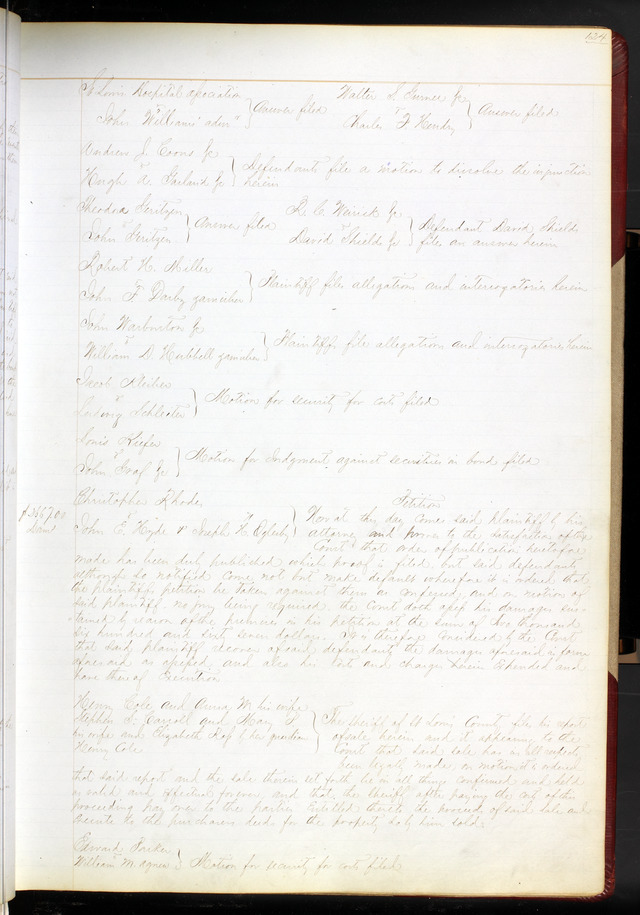 124
St Louis Hospital association
vs
John Williams adm
Answer filed
Walter S.
vs
Charles F Hendry
Answer filed
Andrew J Coons
vs
Hugh A. Garland
Defendants file a motion to dissolve the injunction
herein
Theodora Gritzen
vs
John Gritzen
Answer filed
vs
David Shields
Defendant David Shields
files an answer herein
Robert N. Miller
vs
John F Darby garnishee
Plaintiff files allegations and interrogatories herein
John Warburton
vs
William D. Hubbell garnishee
Plaintiff files allegations and interrogatories herein
Jacob
vs
Ludwig
Motion for security for costs filed
Louis Kiefer
vs
John Graf
Motion for Judgment against securities in bond filed
Christopher Rhodes
vs
John E. Hyde & Joseph H. Oglesby
Petition
Now at this day comes said plaintiff by his
attorney and proves to the satisfaction of the
Court that order of publication heretofore
made has been duly published which proof is filed, but said defendants
although so notified come not but make default wherefore it is ordered that
the plaintiffs petition be taken against them as confessed, and on motion of
said plaintiff, no jury being required the Court doth assess his damages sus-
tained by reason of the premises in his petition at the sum of two thousand
six hundred and sixty seven dollars. It is therefore considered by the Court
that said plaintiff recover of said defendants the damages aforesaid in form
aforesaid as assessed and also his costs and charges herein expended and
have thereof Execution
Henry Cole and M his wife
Stephen S. Carroll and Mary L
his wife and Elizabeth by her guardian
Henry Cole
The sheriff of St Louis County files his report
of sale herein and it appearing to the
Court that said sale has in all respects
been legally made, on motion it is ordered
that said report and the sale therein set forth be in all things confirmed and held
as valid and effectual forever, and that the sheriff after paying the costs of this
proceeding pay over to the parties entitled thereto the proceeds of said sale and
execute to the purchasers deeds for the property so by him sold.
Edward
William M Agnew
Motion for security for costs filed